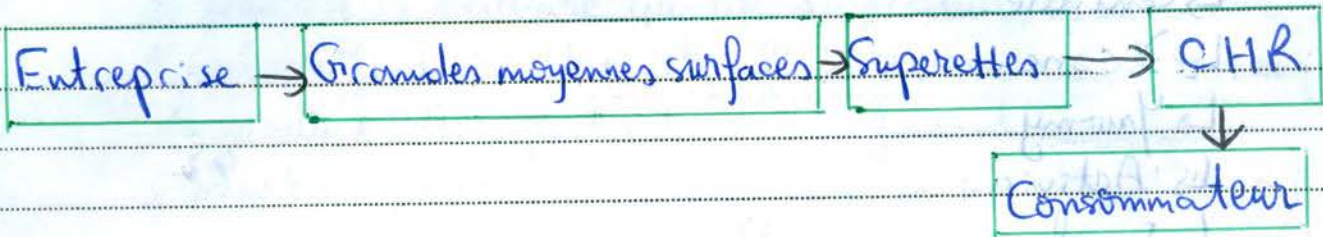 Entreprise → Grandes moyennes surfaces → Superettes → CHR
Consommateur